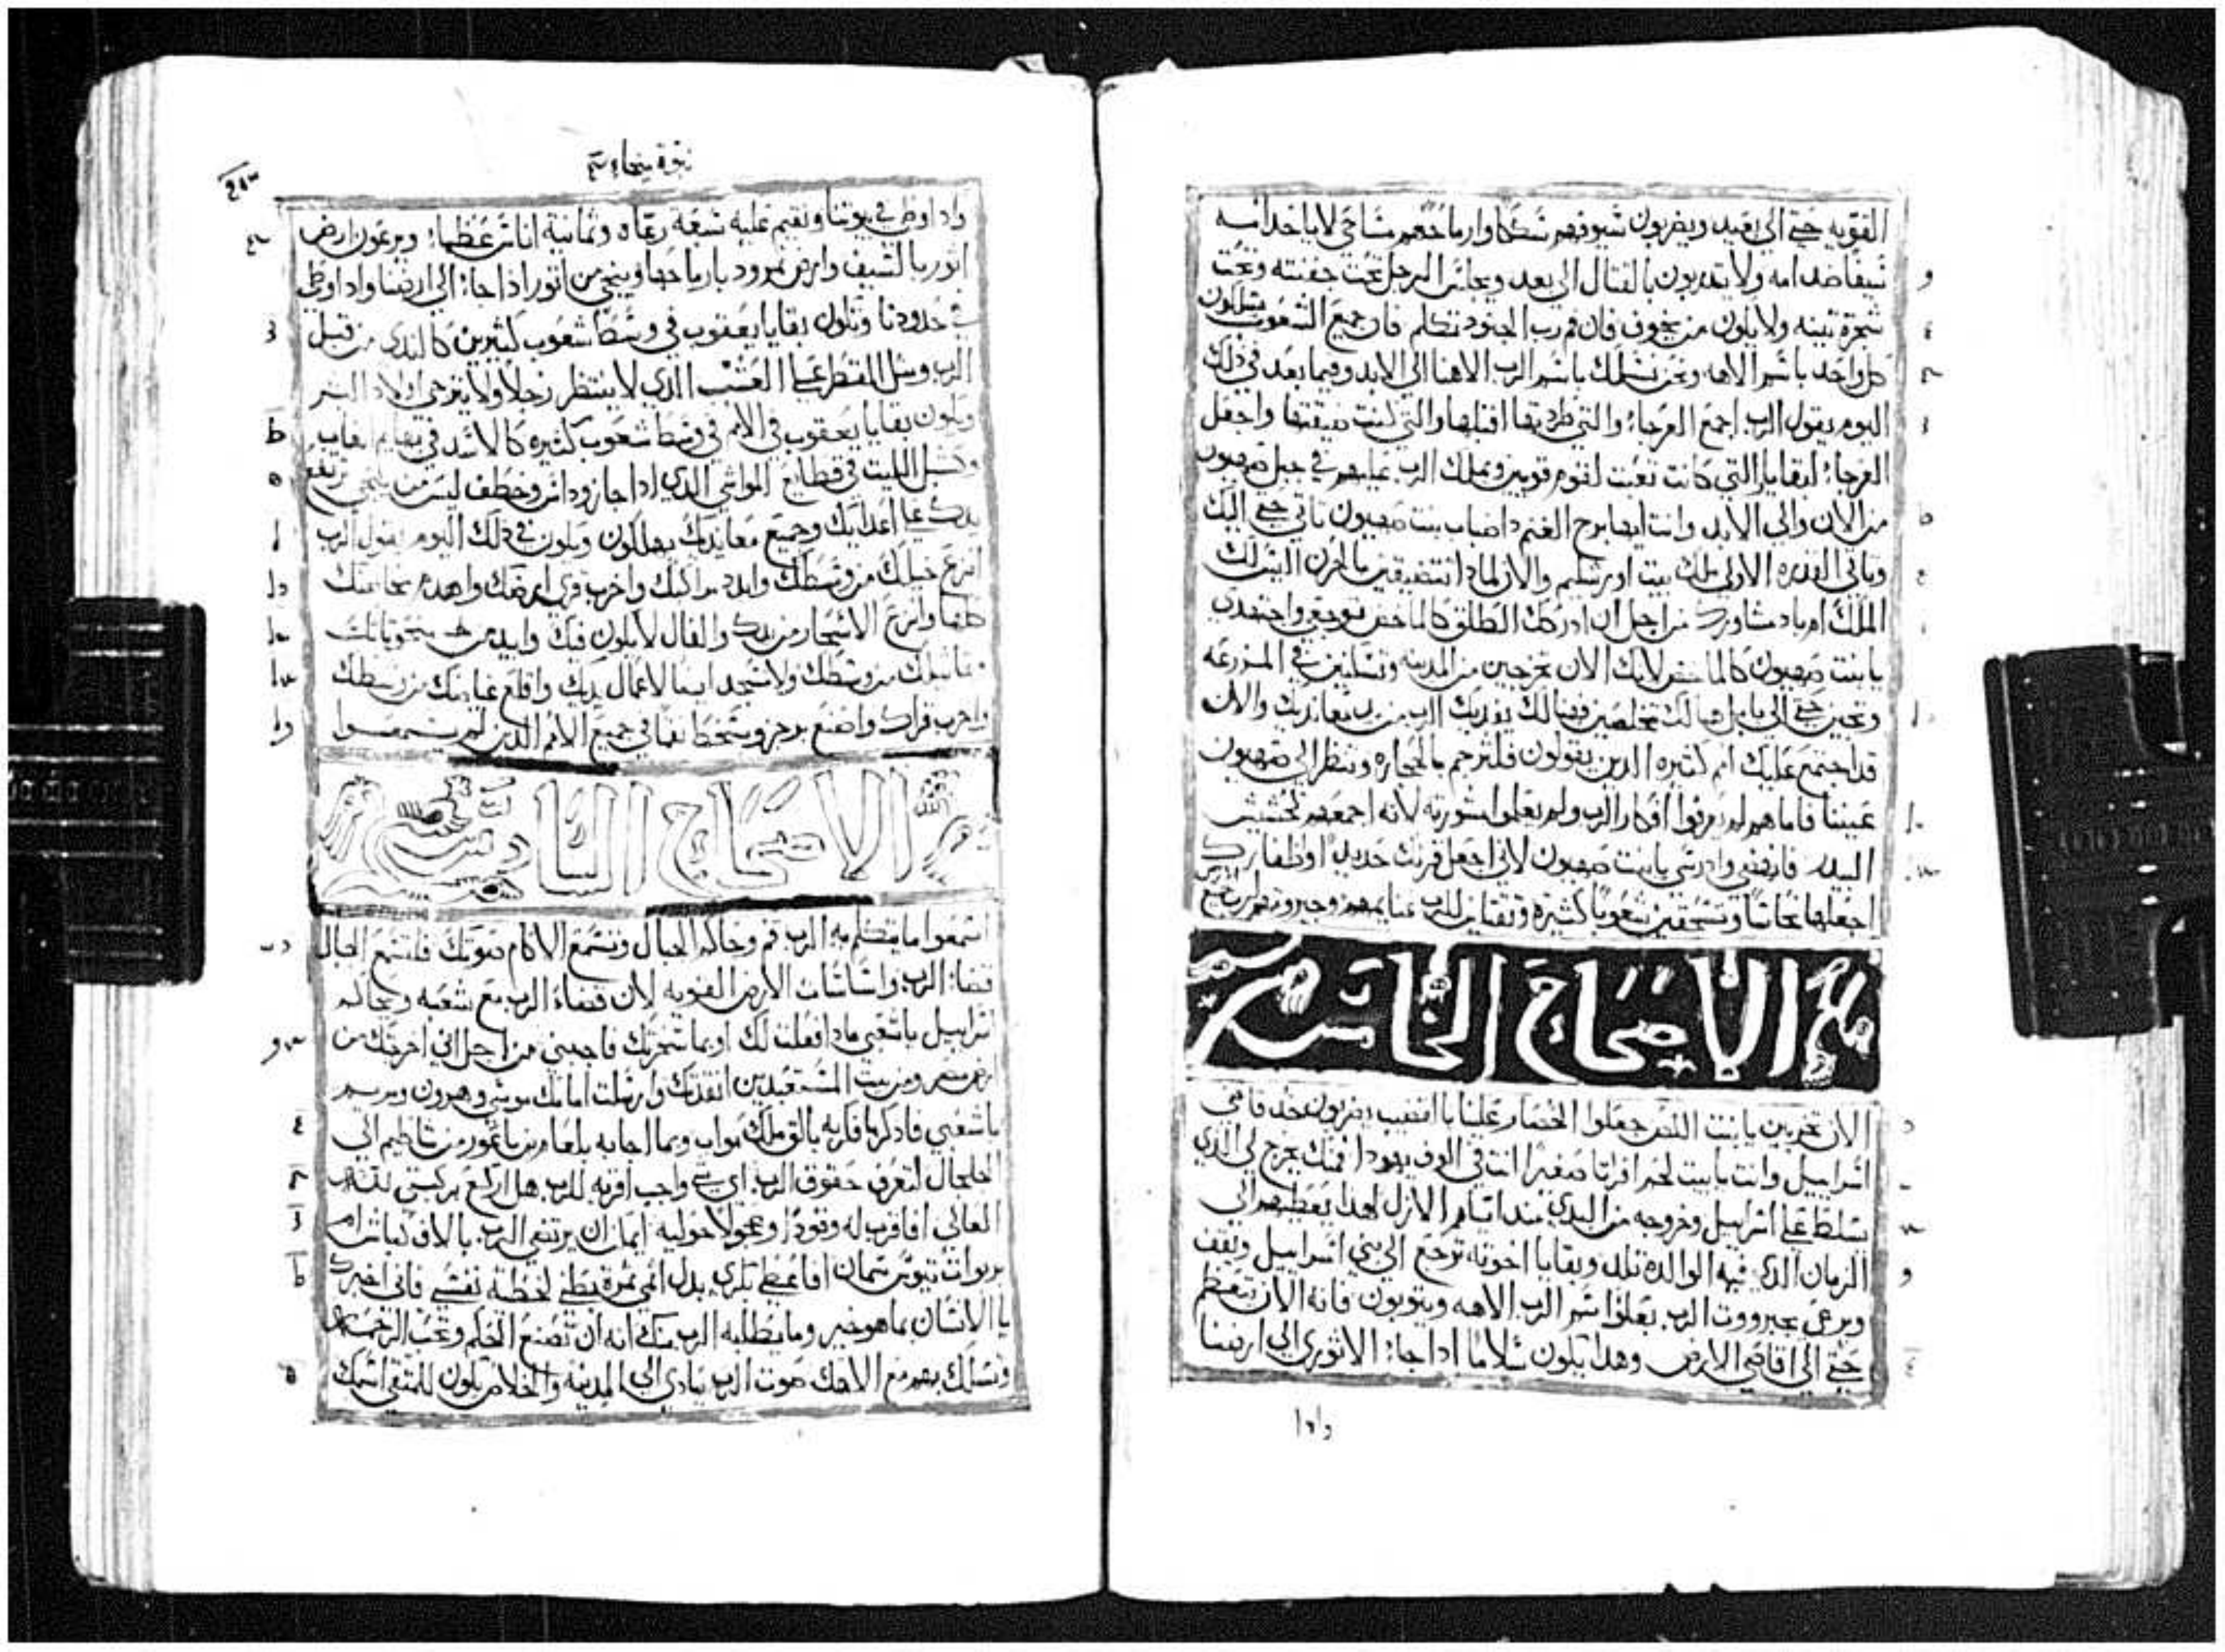 القويه حتي الي بعيد ويضربون سيوفهم سككا وارماحهم مناجل لا ياخد امه
سيفا ضد امه ولا يتدربون بالقتال الي بعد ويجلس الرجل تحت جفنته وتحت
شجرة تينه ولا يكون من يخوف فان فم رب الجنود تكلم فان جميع الشعوب يسلكون
كل واحد باسم الاهه ونحن نسلك باسم الرب الاهنا الي الابد وفيما بعد في ذلك
اليوم يقول الرب اجمع العرجاء والتي طردتها اقبلها والتي كنت ضيقتها واجعل
العرجاء لبقايا والتي كانت تعبت لقوم قويين ويملك الرب عليهم في جبل صهيون
من الان والي الابد وانت ايها برج الغنم ضباب بنت صهيون تاتي حتي اليك
وتاتي القدره الاولي ملك بيت اورشليم والان لمادا تتضيقين بالحزن اليس لك
الملك ام باد مشاورك من اجل ان ادركك الطلق كالماخض توجعي واجتهدي
يا بنت صهيون كالماخض لانك الان تخرجين من المدينه وتسكنين في المزرعه
وتجين حتي الي بابل هنالك تخلصين وهنالك يفديك الرب من يد معانديك والان
قد اجتمع عليك امم كثيره الدين يقولون فلترجم بالحجاره وتنظر الي صهيون
عيننا فاما هم لم يعرفوا افكار الرب ولم يفهموا مشورته لانه اجمعهم كحشيش
البيدر فانهضي وادرسي يا بنت صهيون لاني اجعل قرنك حديدا واظفارك
اجعلها نحاسا وتسحقين شعوبا كثيرة وتقتلين للرب غنايمهم وجبروتهم لرب جميع
الاصحاح الخامس
الان تخربين يا بنت اللص جعلوا الحصار علينا بالقضيب يضربون خد قاضي
اسراييل وانت يا بيت لحم افراتا صغيرا انت في الوف يهودا فمنك يخرج لي الدي
يتسلط علي اسراييل وخروجه من البدي مند ايام الازل لهدا يعطيهم الي
الزمان الدي فيه الوالده تلد وبقايا اخوته ترجع الي بني اسراييل ويقف
ويرعي بجبرووت الرب بعلو اسم الرب الاهه ويتوبون فانه الان يتعظم
حتي الي اقاصي الارض وهدا يكون سلاما ادا جاء الاثوري الي ارضنا
وادا
نبوة ميخا
وادا وطي في بيوتنا ونقيم عليه سبعة رعاه وثمانية اناس عظماء ويرعون ارض
اثور بالسيف وارض نمرود بارماحها وينجي من اثور ادا جاء الي ارضنا وادا وطي
في حدودنا وتكون بقايا يعقوب في وسط شعوب كثيرين كالندي من قبل
الرب ومثل القطر علي العشب الدي لا ينتظر رجلا ولا يترجي اولاد البشر
وتكون بقايا يعقوب في الامم في وسط شعوب كثيره كالاسد في بهايم الغاب
وكشبل الليث في قطايع المواشي الدي ادا جاز وداس وخطف ليس من ينجي ترتفع
يدك علي اعدايك وجميع معانديك يهلكون ويكون في ذلك اليوم يقول الرب
انزع خيلك من وسطك وابيد مراكبك واخرب قري ارضك واهدم محاصنك
كلها وانزع الاسحار من يدك والفال لا يكون فيك وابيد منحوتاتك
وتماثيلك من وسطك ولا تسجد ايضا لاعمال يديك واقلع غياضك من وسطك
واخرب قراك واصنع برجز وسخط نقما في جميع الامم الدين لم يسمعوا
الاصحاح السادس
اسمعوا ما يتكلم به الرب قم وحاكم الجبال وتسمع الاكام صوتك فلتسمع الجبال
قضاء الرب واساسات الارض القويه لان قضاء الرب مع شعبه ويحاكم
اسراييل يا شعبي مادا فعلت لك او بما اضجرتك فاجبني من اجل اني اخرجتك من
ارض مصر ومن بيت المستعبدين انقدتك وارسلت امامك موسي وهرون ومريم
يا شعبي فادكر ما فكر به بالق ملك مواب وبما اجابه بلعام بن باعور من شاطيم الي
الجلجال لتعرف حقوق الرب اي شي واجب اقربه للرب هل اركع بركبتي للاله
العالي افاقرب له وقودا وعجولا حوليه ايما ان يرتضي الرب بالاف كباش ام
بربوات تيوس سمان افاعطي بكري بدل اثمي ثمرة بطني لخطية نفسي فاني اخبرك
يا الانسان بما هو خير وما يطلبه الرب منك انه ان تصنع الحكم وتحب الرحمه
وتسلك مع الاهك صوت الرب ينادي الي المدينه والخلاص يكون للمتقي اسمك